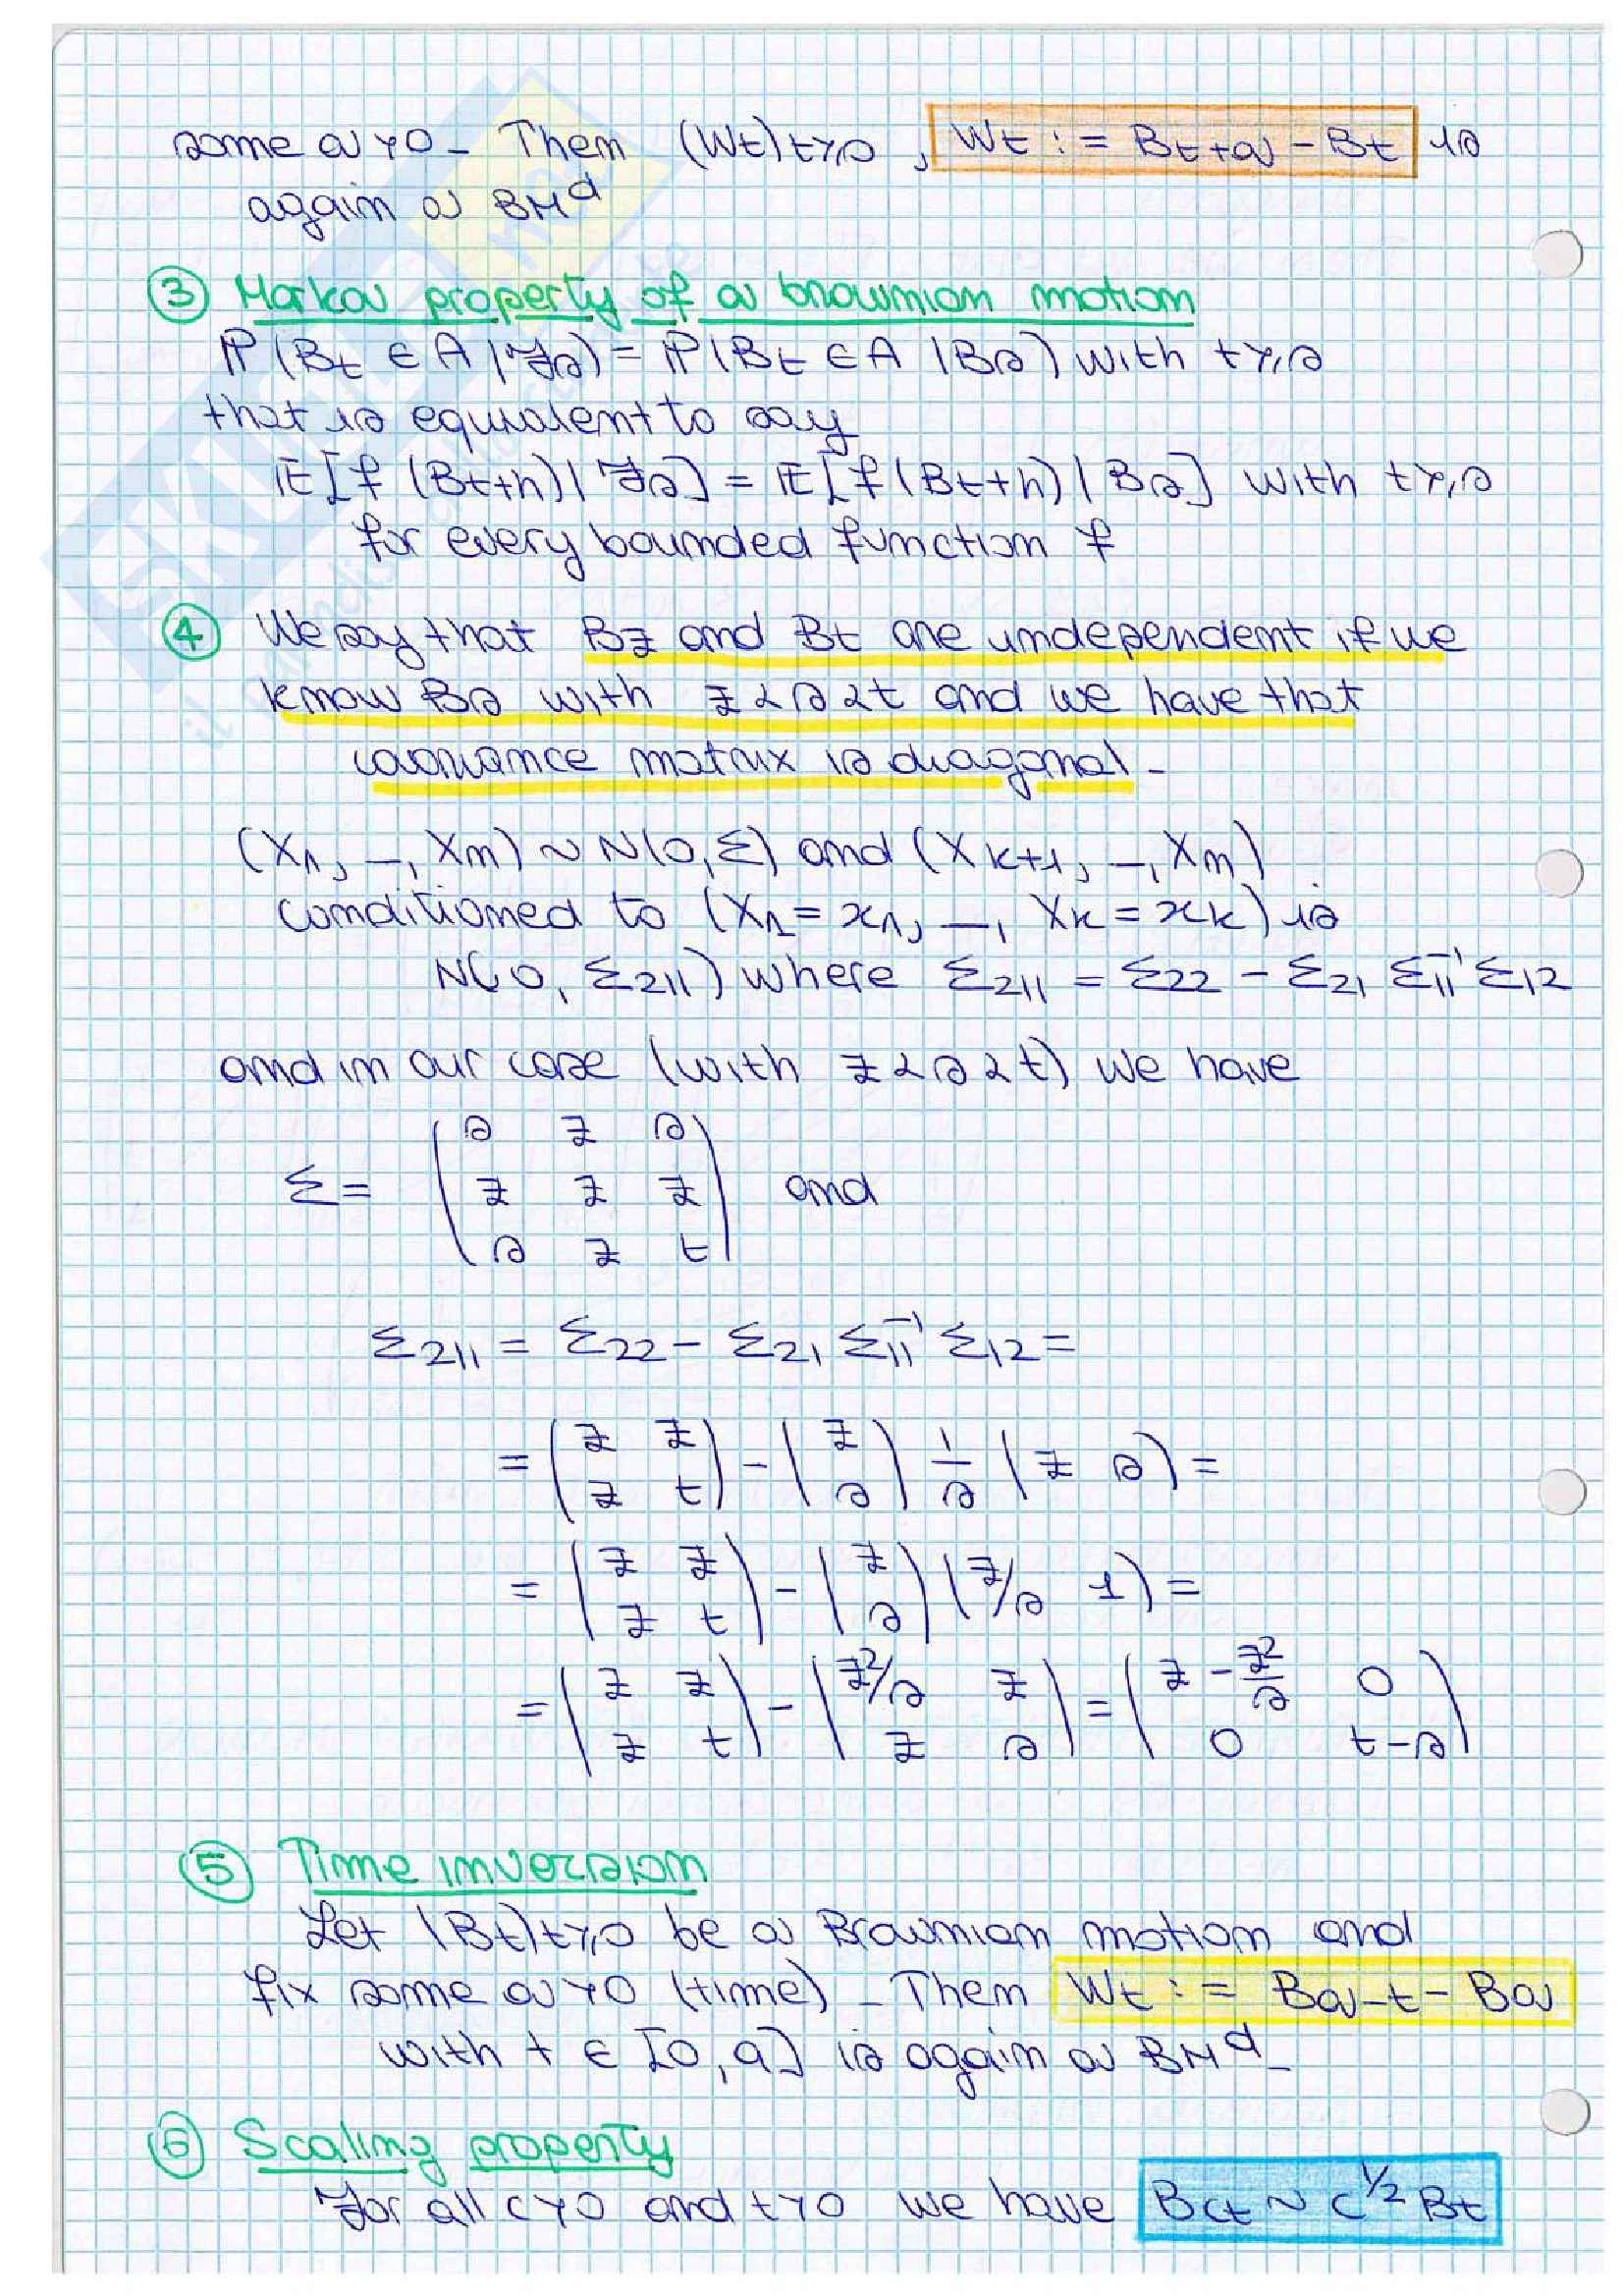 some a>0_ Then (Wt)t≥0, Wt := Bt+a - Bt is
again a BM^d
③ Markov property of a brownian motion
P(Bt ∈ A | Fs) = P(Bt ∈ A | Bs) with t≥s
that is equivalent to say
E[f(Bt+h) | Fs] = E[f(Bt+h) | Bs] with t≥s
for every bounded function f
④ We say that Bz and Bt are independent if we
know Bs with z<s<t and we have that
covariance matrix is diagonal_
(X1, _, Xm) ~ N(0, Σ) and (Xk+1, _, Xm)
conditioned to (X1 = x1, _, Xk = xk) is
N(0, Σ2|1) where Σ2|1 = Σ22 - Σ21 Σ11^-1 Σ12
and in our case (with z<s<t) we have
s z s
Σ = ( z z z ) and
s z t
Σ2|1 = Σ22 - Σ21 Σ11^-1 Σ12 =
= (z z / z t) - (z / s) 1/s (z s) =
= (z z / z t) - (z / s) (z/s 1) =
= (z z / z t) - (z²/s z / z s) = (z - z²/s 0 / 0 t-s)
⑤ Time inversion
Let (Bt)t≥0 be a Brownian motion and
fix some a>0 (time)_ Then Wt := Ba-t - Ba
with t ∈ [0, a] is again a BM^d_
⑥ Scaling property
For all c>0 and t>0 we have Bct ~ c^1/2 Bt